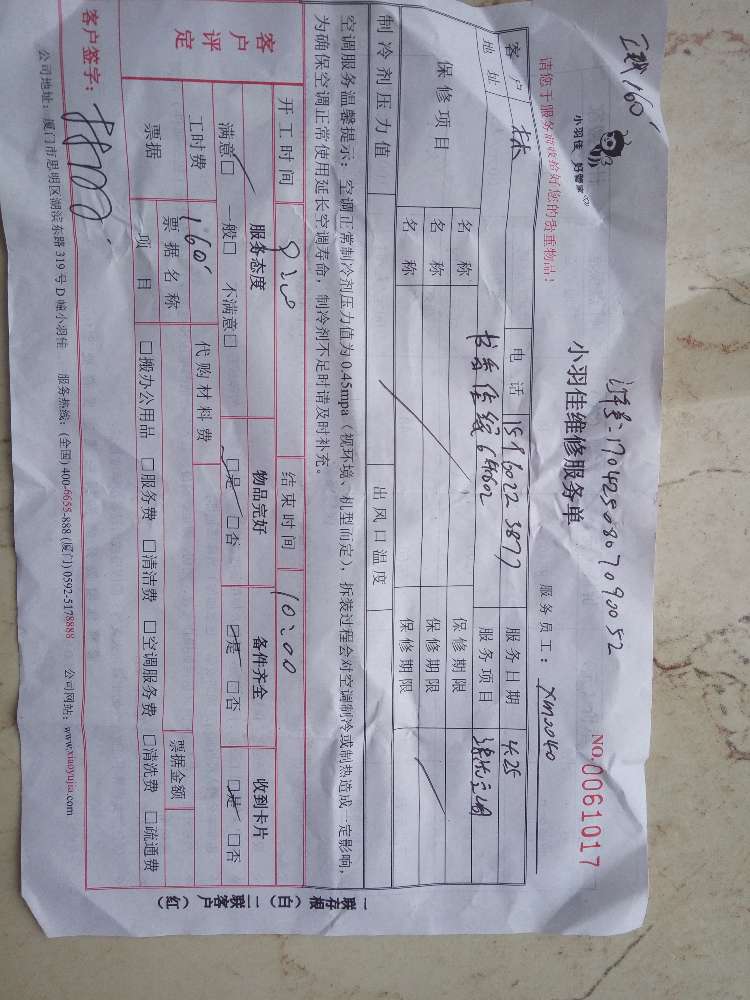 工料160
单号:1704250807090052
小羽佳 好管家
小羽佳维修服务单
NO.0061017
请您于服务前收拾好您的贵重物品!
服务员工: XM0040
客户 林 电话 15960223877 服务日期 4.25
地址 书香佳缘 64602 服务项目 清洗空调
保修项目 名称 保修期限
名称 保修期限
名称 保修期限
制冷剂压力值 出风口温度
空调服务温馨提示:空调正常制冷剂压力值为0.45mpa(视环境、机型而定),拆装过程会对空调制冷或制热造成一定影响,
为确保空调正常使用延长空调寿命,制冷剂不足时请及时补充。
开工时间 9:20 结束时间 10:00
客户评定 服务态度 物品完好 备件齐全 收到卡片
满意□ 一般□ 不满意□ □是 □否 □是 □否 □是 □否
工时费 160 代购材料费
票据 票据名称 票据金额
项目 □搬办公用品 □服务费 □清洁费 □空调服务费 □清洗费 □疏通费
客户签字:
公司地址:厦门市思明区湖滨东路319号D幢小羽佳 服务热线:(全国)400-6655-888 (厦门)0592-5178888 公司网站:www.xiaoyujia.com
一联存根(白) 二联客户(红)